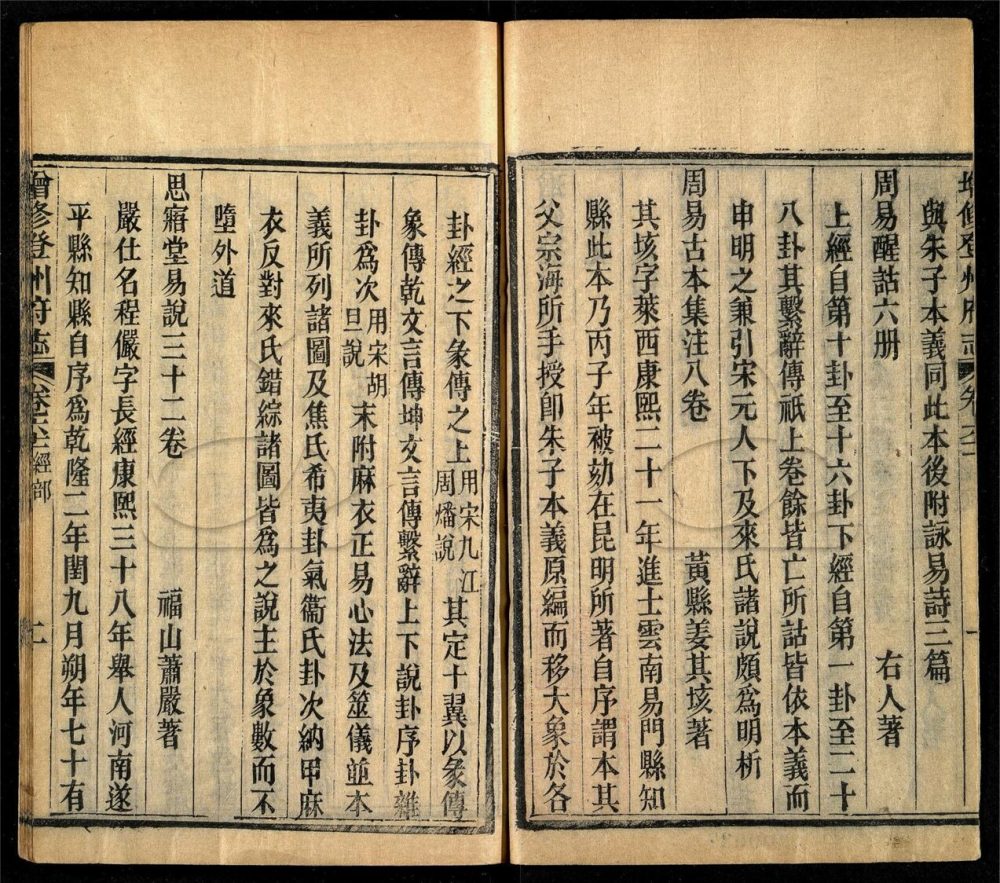 增修登州府志 卷六十二 一
與朱子本義同此本後附詠易詩三篇
周易醒詁六册 右人著
上經自第十卦至十六卦下經自第一卦至二十
八卦其繫辭傳祇上卷餘皆亡所詁皆依本義而
申明之兼引宋元人下及來氏諸說頗爲明析
周易古本集注八卷 黃縣姜其垓著
其垓字萊西康熙二十一年進士雲南易門縣知
縣此本乃丙子年被劾在昆明所著自序謂本其
父宗海所手授卽朱子本義原編而移大象於各
卦經之下彖傳之上用宋九江周燔說其定十翼以彖傳
象傳乾文言傳坤文言傳繫辭上下說卦序卦雜
卦爲次用宋胡旦說末附麻衣正易心法及筮儀並本
義所列諸圖及焦氏希夷卦氣衞氏卦次納甲麻
衣反對來氏錯綜諸圖皆爲之說主於象數而不
墮外道
思寤堂易說三十二卷 福山蕭嚴著
嚴仕名程儼字長經康熙三十八年舉人河南遂
平縣知縣自序爲乾隆二年閏九月朔年七十有
增修登州府志 卷六十二 經部 二